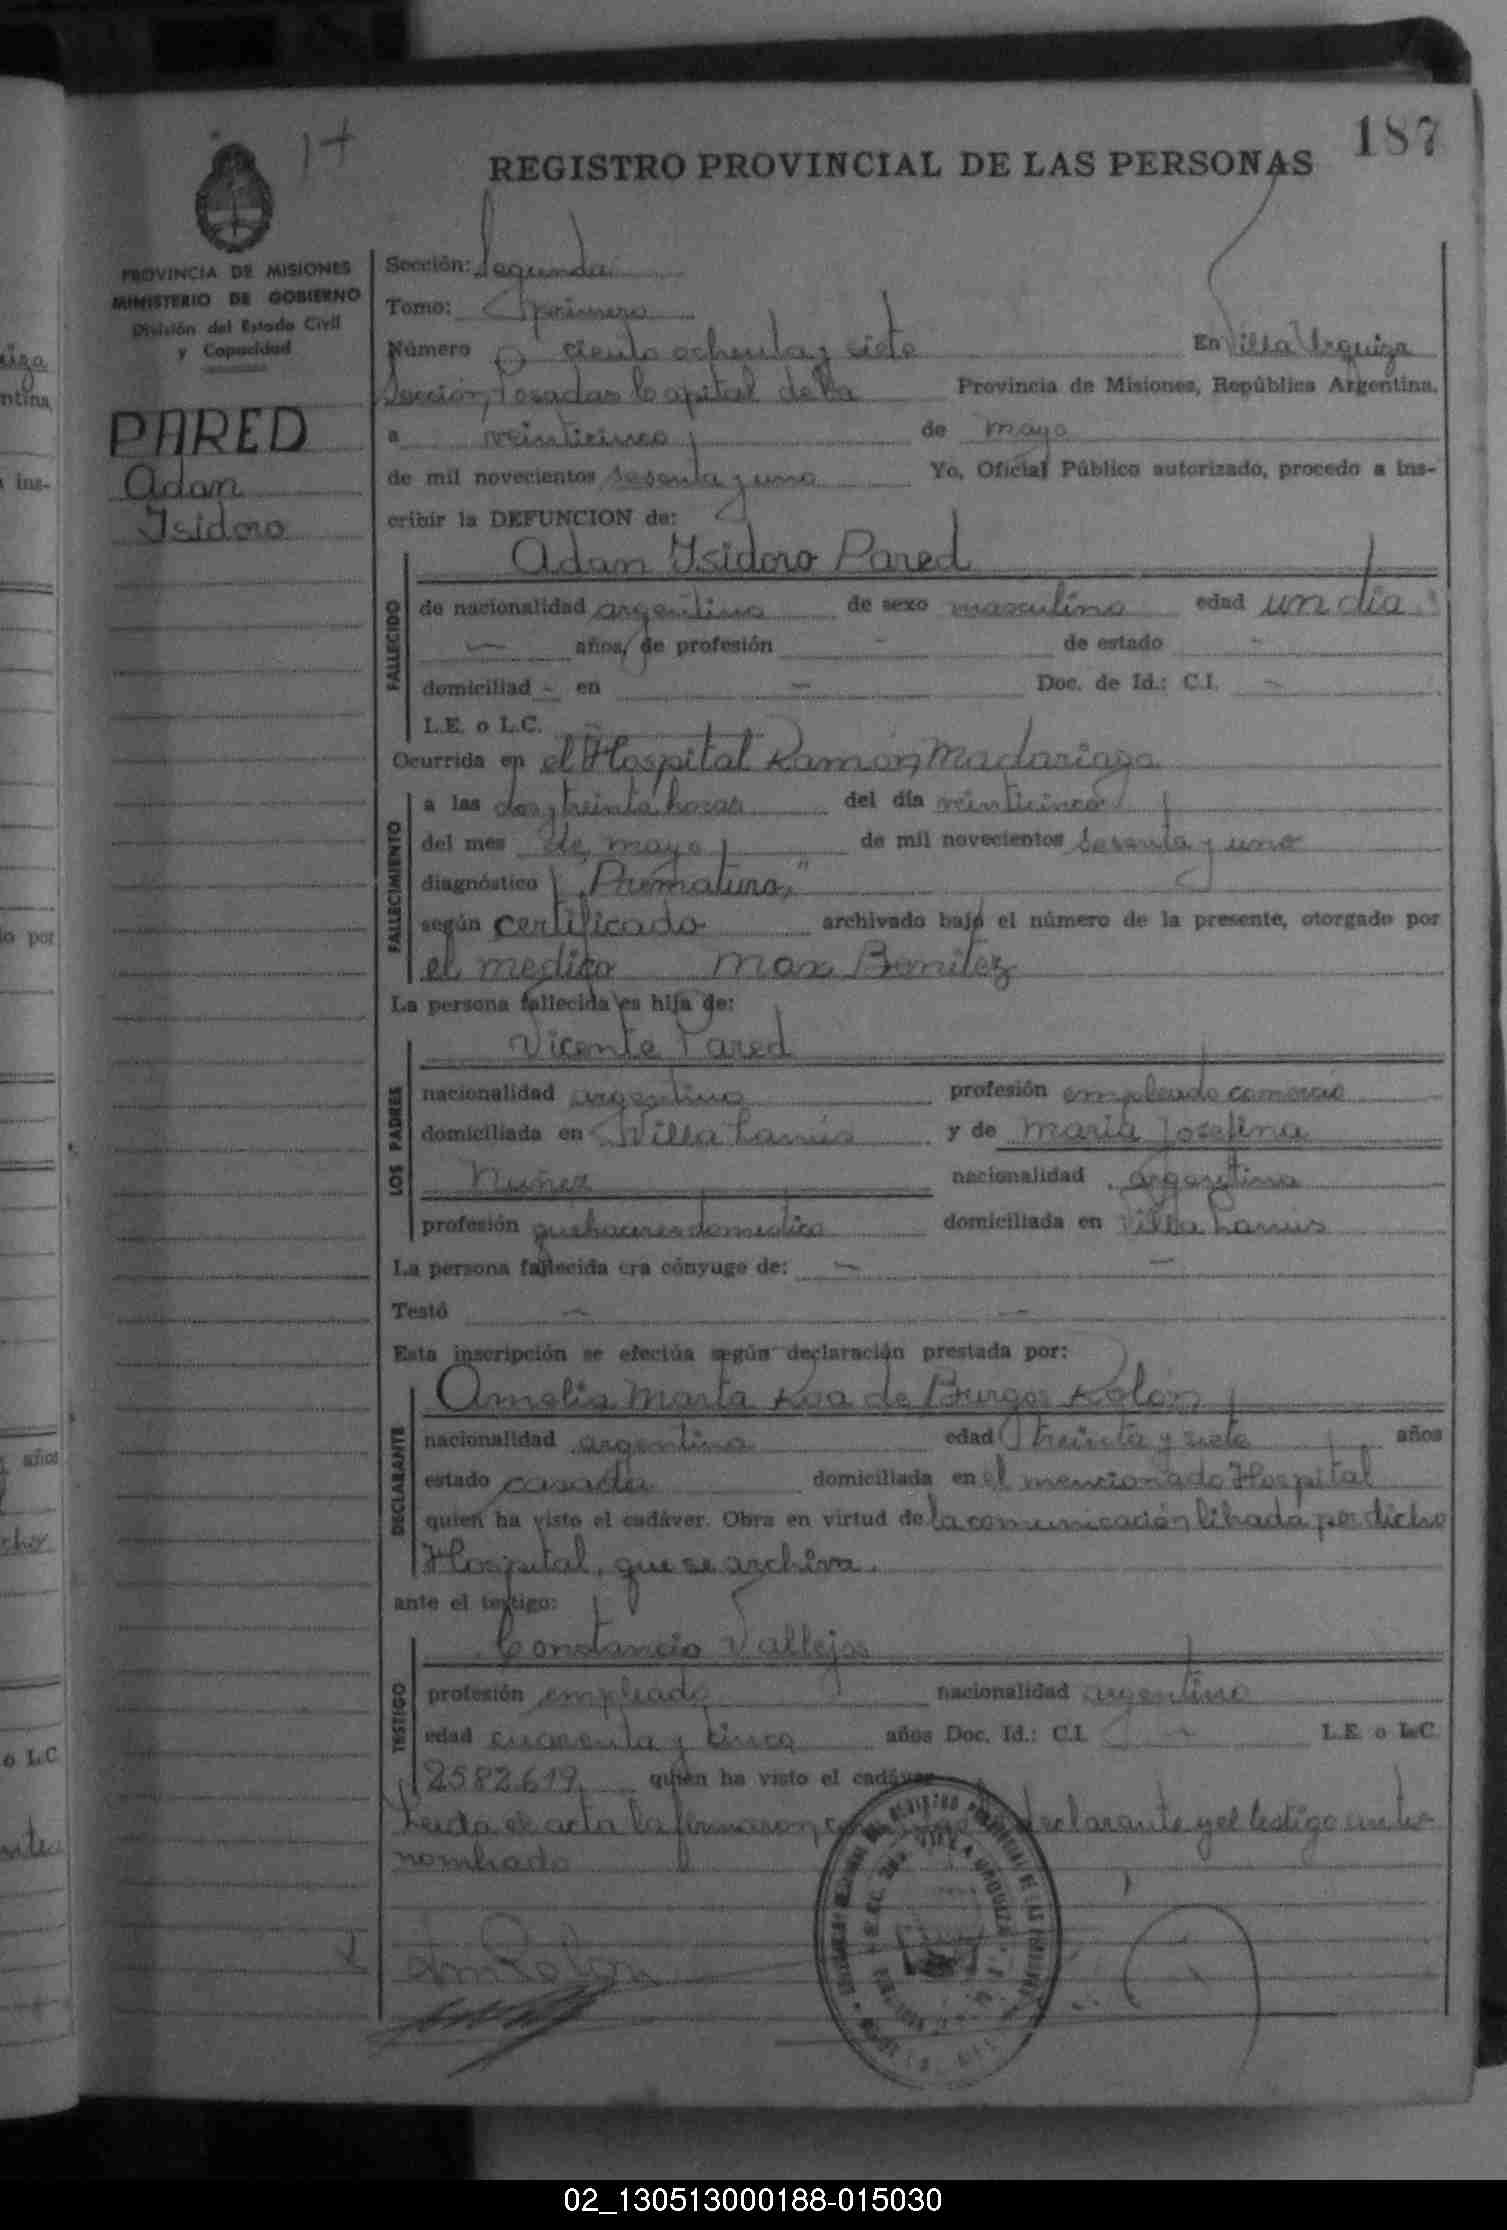 187
17
REGISTRO PROVINCIAL DE LAS PERSONAS
PROVINCIA DE MISIONES
MINISTERIO DE GOBIERNO
División del Estado Civil
y Capacidad
PARED
Adan
Isidoro
Sección: Segunda
Tomo: primero
Número ciento ochenta y siete En Villa Urquiza
Sección, Posadas Capital de la Provincia de Misiones, República Argentina,
a veinticinco de mayo
de mil novecientos sesenta y uno Yo, Oficial Público autorizado, procedo a ins-
cribir la DEFUNCION de:
Adan Isidoro Pared
FALLECIDO
de nacionalidad argentina de sexo masculino edad un día
— años, de profesión - de estado -
domiciliad - en — Doc. de Id.: C.I. -
L.E. o L.C. —
Ocurrida en el Hospital Ramón Madariaga
FALLECIMIENTO
a las dos y treinta horas del día veinticinco
del mes de mayo de mil novecientos sesenta y uno
diagnóstico "Prematuro"
según certificado archivado bajo el número de la presente, otorgado por
el medico Max Benitez
La persona fallecida es hija de:
Vicente Pared
LOS PADRES
nacionalidad argentina profesión empleado comercio
domiciliada en Villa Lanús y de Maria Josefina
Nuñez nacionalidad argentina
profesión quehaceres domestico domiciliada en Villa Lanus
La persona fallecida era cónyuge de: — —
Testó — —
Esta inscripción se efectúa según declaración prestada por:
Amelia Marta Roa de Burgos Rolón
DECLARANTE
nacionalidad argentina edad treinta y siete años
estado casada domiciliada en el mencionado Hospital
quien ha visto el cadáver. Obra en virtud de la comunicación librada por dicho
Hospital, que se archiva.
ante el testigo:
Constancio Vallejos
TESTIGO
profesión empleado nacionalidad argentino
edad cuarenta y cinco años Doc. Id.: C.I. — L.E. o L.C.
2582619 quien ha visto el cadáver
Leida el acta la firmaron declarante y el testigo ante
nombrado
VILLA URQUIZA
02_130513000188-015030